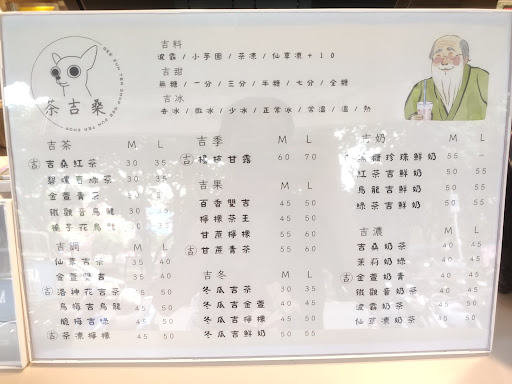 茶吉桑
GEE SUN TEA SHOP
吉料
波霸/小芋圓/茶凍/仙草凍+10
吉甜
無糖/一分/三分/半糖/七分/全糖
吉冰
去冰/微冰/少冰/正常冰/常溫/溫/熱
吉茶 M L
吉 吉桑紅茶 30 35
碧螺春綠茶 30 35
金萱青茶 30
鐵觀音烏龍 30 45
梔子花烏龍 30 35
吉調
仙草吉茶 35
金萱雙吉 35 40
吉 洛神花吉茶 45 50
烏梅吉烏龍 45 50
脆梅吉綠 45 50
吉 茶凍檸檬 45 50
吉季 M L
吉 橘枝甘露 60 70
吉果 M L
百香雙吉 45 50
檸檬茶王 45 50
甘蔗檸檬 55 60
吉 甘蔗青茶 55 60
吉冬 M L
冬瓜吉茶 30 35
冬瓜吉金萱 40 45
冬瓜吉檸檬 45 50
冬瓜吉鮮奶 50 55
吉奶 M L
糖珍珠鮮奶 55 –
紅茶吉鮮奶 50 55
烏龍吉鮮奶 50 55
綠茶吉鮮奶 50 55
吉濃 M L
吉桑奶茶 40 45
茉莉奶綠 40 45
吉 金萱奶青 40 45
鐵觀音奶茶 45 50
波霸奶茶 45 50
仙草凍奶茶 45 50